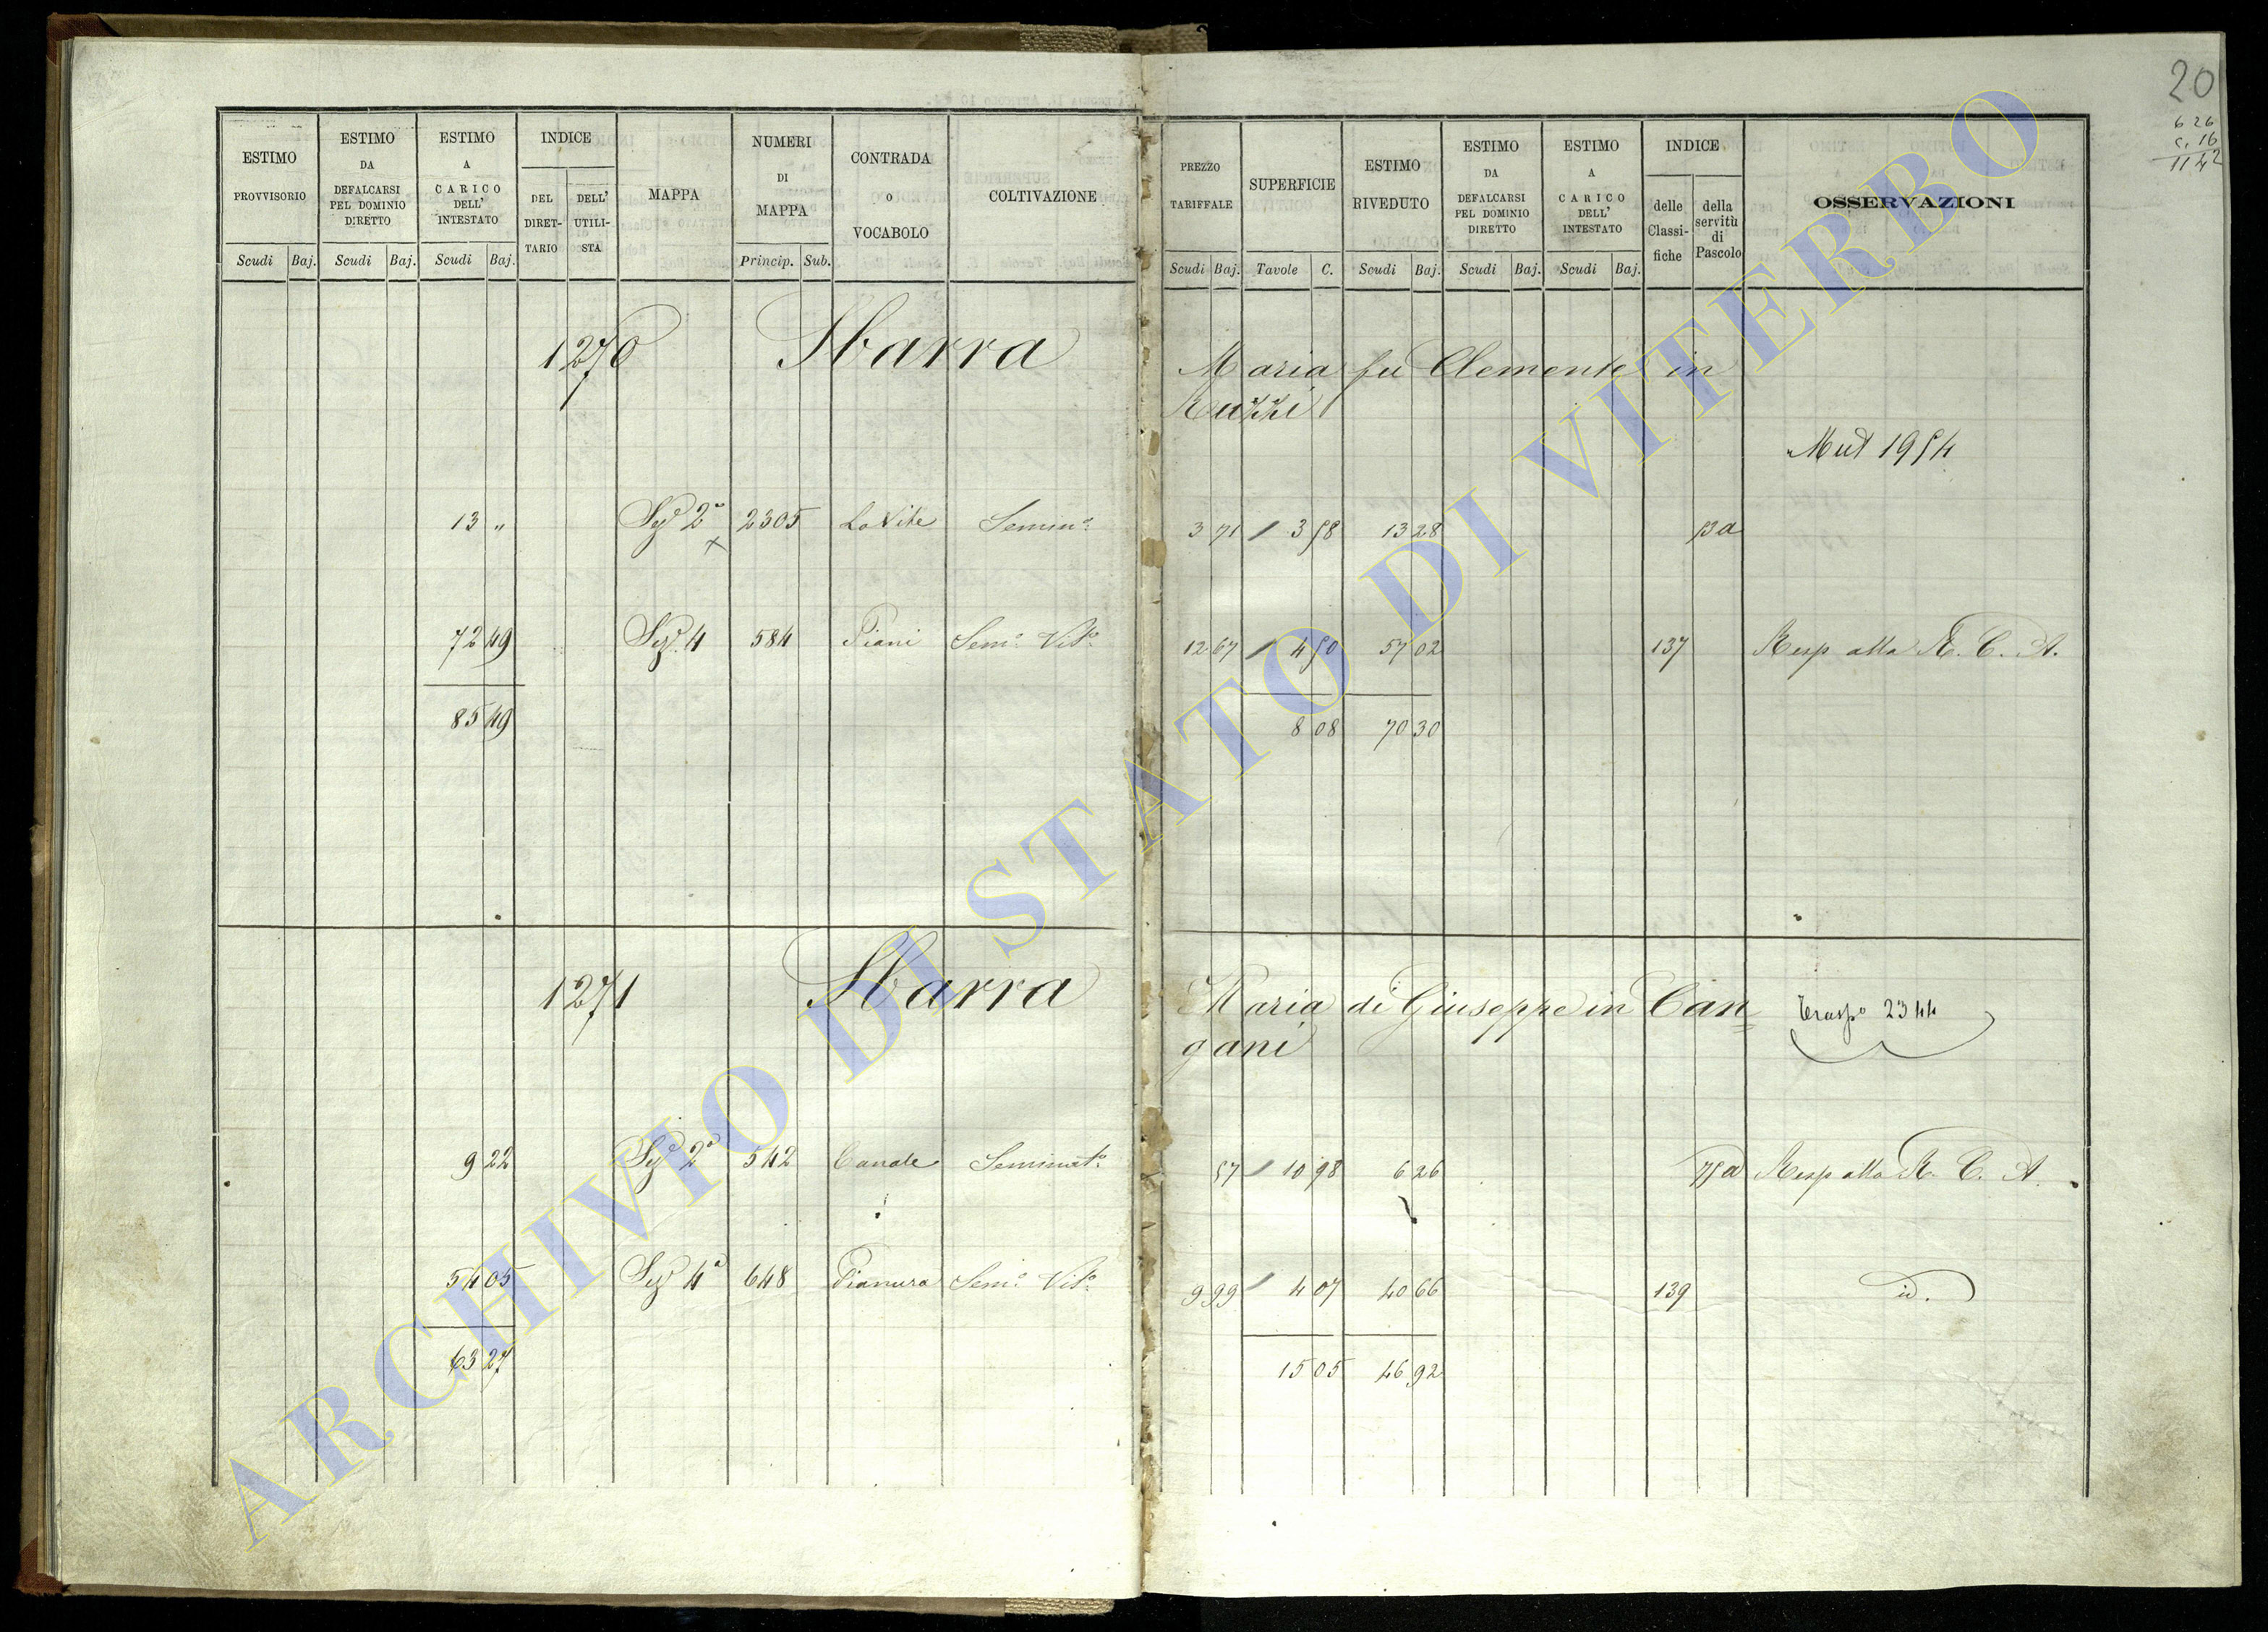 20
6 26
5. 16
11 42
ESTIMO PROVVISORIO
ESTIMO DA DEFALCARSI PEL DOMINIO DIRETTO
ESTIMO A CARICO DELL' INTESTATO
INDICE
DEL DIRET-TARIO
DELL' UTILI-STA
MAPPA
NUMERI DI MAPPA
CONTRADA O VOCABOLO
COLTIVAZIONE
Scudi Baj. Scudi Baj. Scudi Baj. Princip. Sub.
PREZZO TARIFFALE
SUPERFICIE
ESTIMO RIVEDUTO
ESTIMO DA DEFALCARSI PEL DOMINIO DIRETTO
ESTIMO A CARICO DELL' INTESTATO
INDICE
delle Classi-fiche
della servitù di Pascolo
OSSERVAZIONI
Scudi Baj. Tavole C. Scudi Baj. Scudi Baj. Scudi Baj.
1270 Sbarra Maria fu Clemente in
Ruzzi
Mut 1954
13 " Sez.e 2a 2305 La Vite Semin.o 3 71 / 3 58 13 28 13 a
72 49 Sez.e 4 584 Piani Sem.o Vit.o 12 67 / 4 50 57 02 137 Resp alla R. C. A.
85 49 8 08 70 30
1271 Sbarra Maria di Giuseppe in Can=
gani
Trasp.o 2344
9 22 Sez.e 2a 542 Canale Seminat.o 57 / 10 98 6 26 75 a Resp alla R. C. A.
54 05 Sez.e 4a 648 Pianura Sem.o Vit.o 9 99 / 4 07 40 66 139 id.
63 27 15 05 46 92
ARCHIVIO DI STATO DI VITERBO